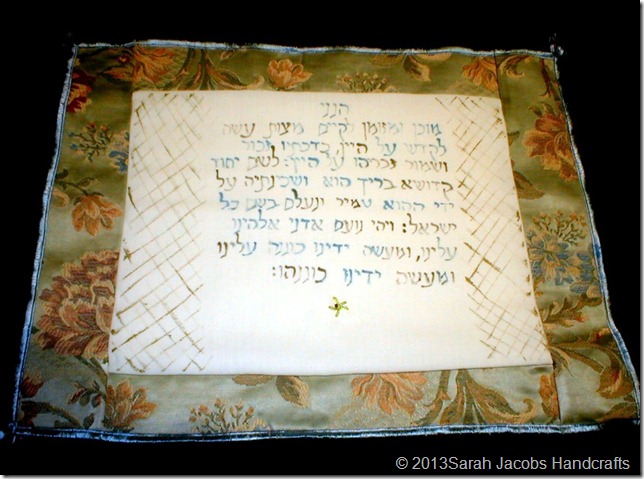 הנני
מוכן ומזומן לקיים מצות עשה
לקדש על היין, כדכתיב זכור
ושמור זכרהו על היין: לשם יחוד
קדושא בריך הוא ושכינתיה על
ידי ההוא טמיר ונעלם בשם כל
ישראל: ויהי נועם אדני אלהינו
עלינו, ומעשה ידינו כוננה עלינו
ומעשה ידינו כוננהו:
© 2013Sarah Jacobs Handcrafts